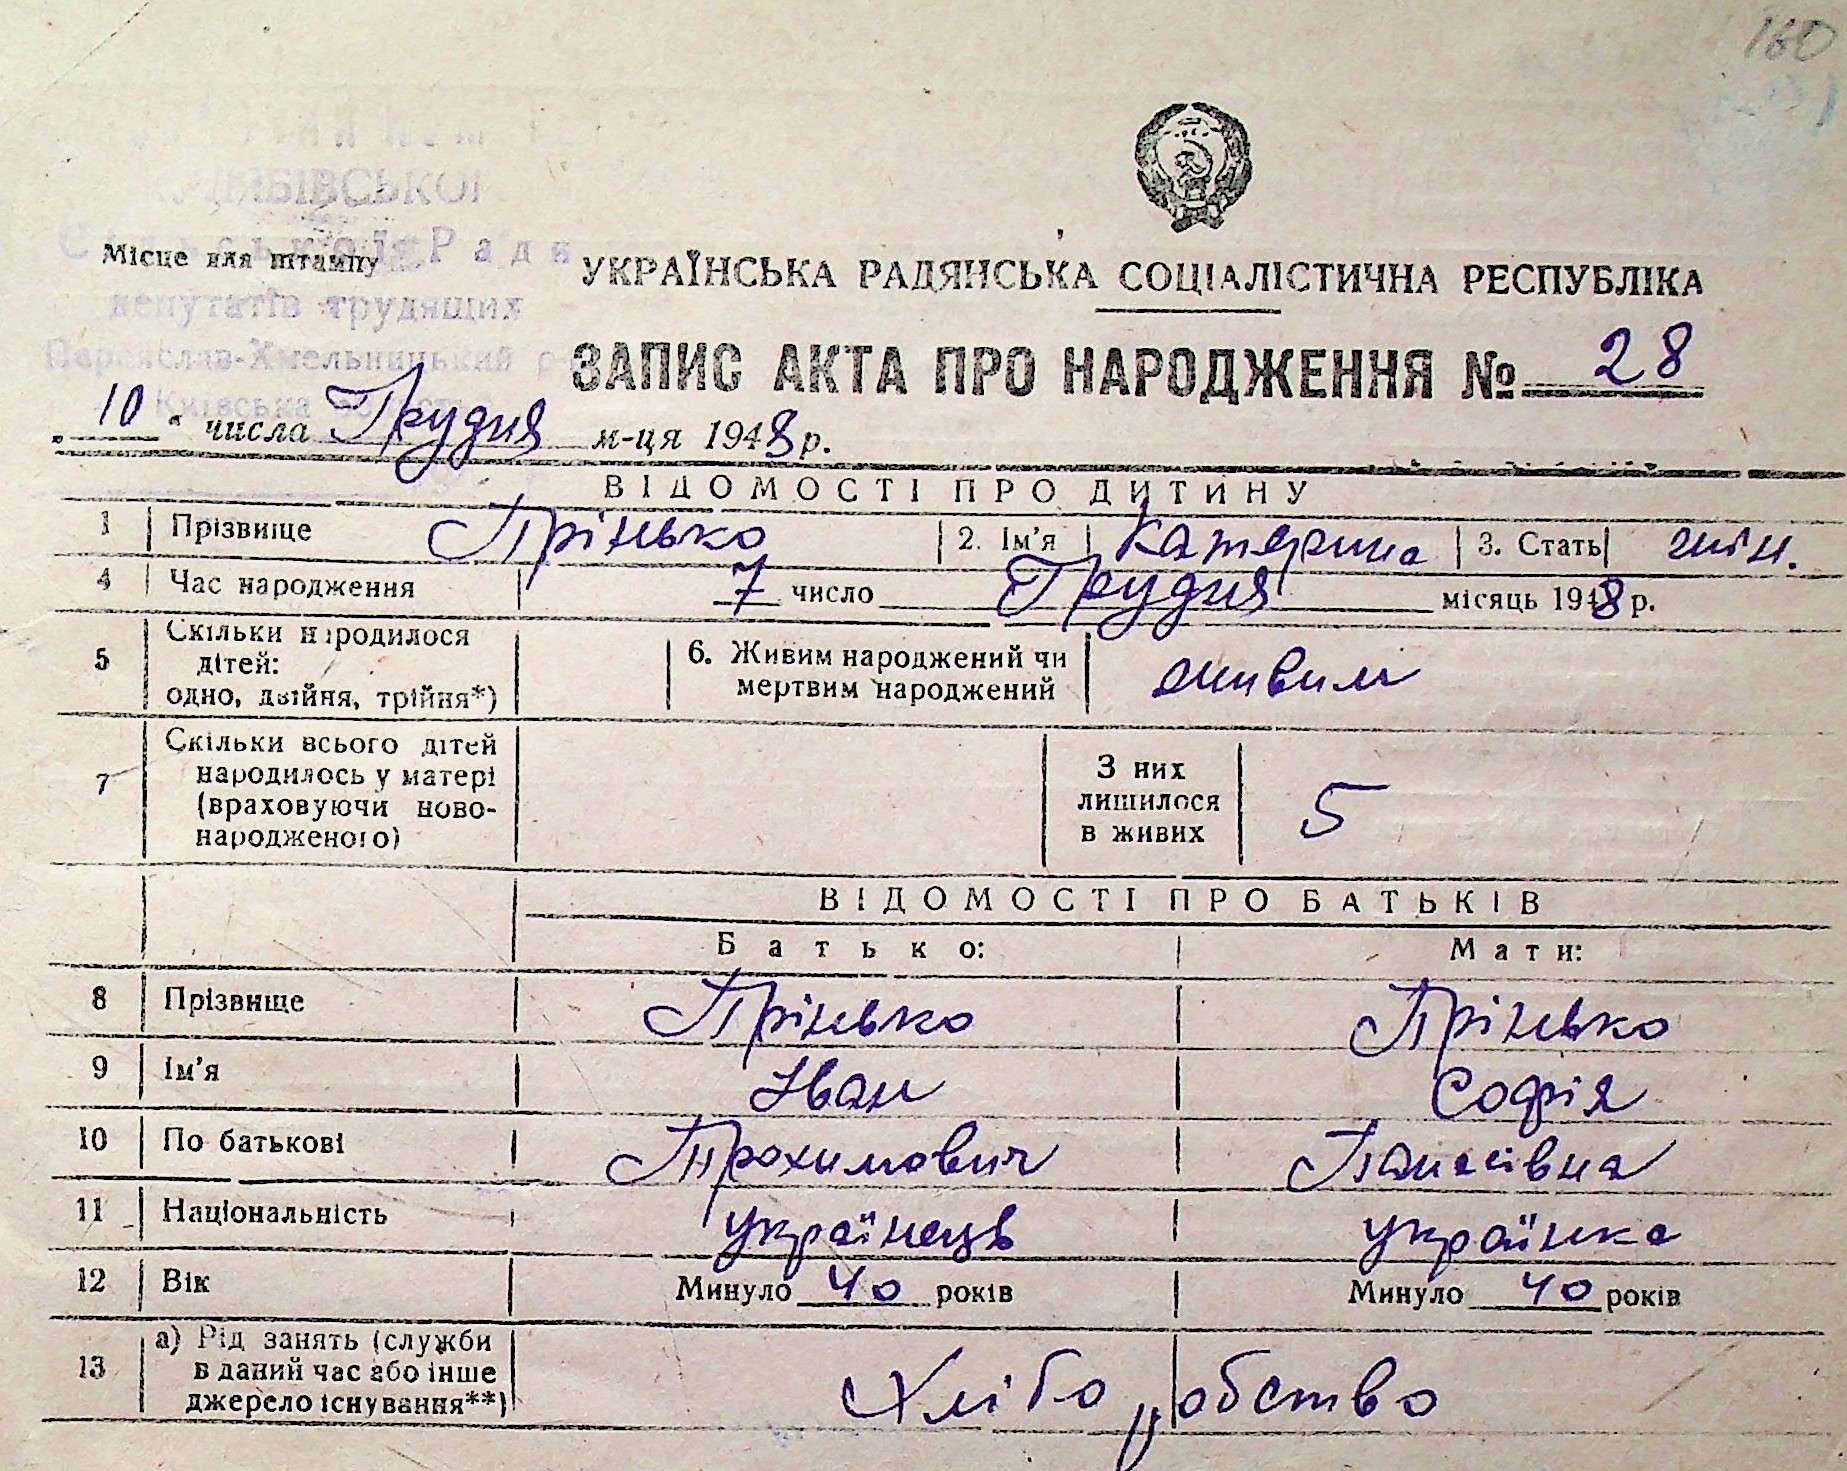 160
СІЛЬСЬКОЇ Ради
депутатів трудящих
Переяслав-Хмельницький р-н
Київська
Місце для штампу
УКРАЇНСЬКА РАДЯНСЬКА СОЦІАЛІСТИЧНА РЕСПУБЛІКА
ЗАПИС АКТА ПРО НАРОДЖЕННЯ № 28
„10“ числа Грудня м-ця 1948 р.
ВІДОМОСТІ ПРО ДИТИНУ
1 Прізвище Прінько 2. Ім'я Катерина 3. Стать жін.
4 Час народження 7 число Грудня місяць 1948 р.
5 Скільки народилося дітей: одно, двійня, трійня*) 6. Живим народжений чи мертвим народжений живим
7 Скільки всього дітей народилось у матері (враховуючи новонародженого) З них лишилося в живих 5
ВІДОМОСТІ ПРО БАТЬКІВ
Батько: Мати:
8 Прізвище Прінько Прінько
9 Ім'я Іван Софія
10 По батькові Трохимович Панасівна
11 Національність українець українка
12 Вік Минуло 40 років Минуло 40 років
13 а) Рід занять (служби в даний час або інше джерело існування**) Хліборобство